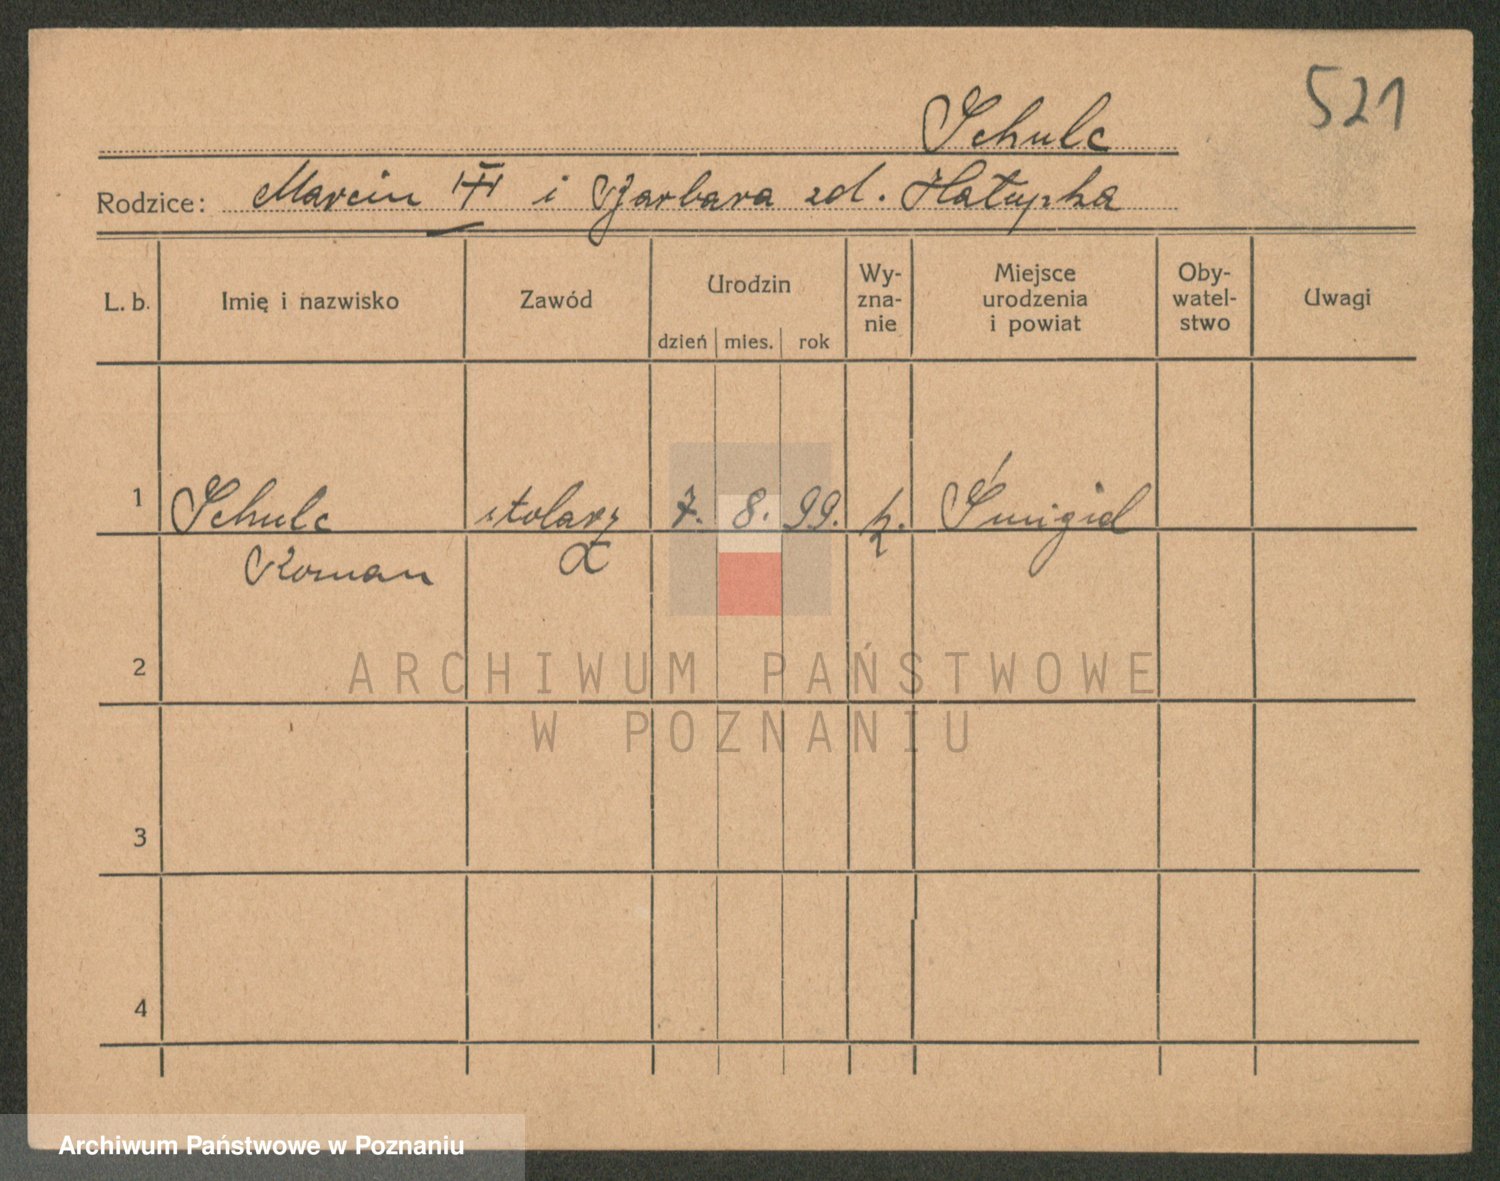 521
Schulc
Rodzice: Marcin III i Barbara zd. Hałupka
L. b. Imię i nazwisko Zawód Urodzin dzień mies. rok Wy-zna-nie Miejsce urodzenia i powiat Oby-watel-stwo Uwagi
1 Schulc stolarz 7. 8. 99. k. Śmigiel
Roman
2
ARCHIWUM PAŃSTWOWE
W POZNANIU
3
4
Archiwum Państwowe w Poznaniu